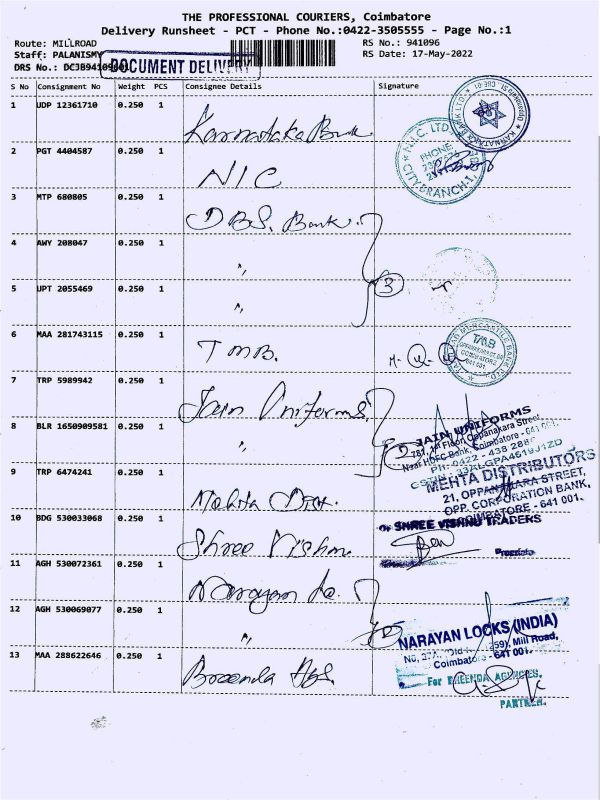 THE PROFESSIONAL COURIERS, Coimbatore
Delivery Runsheet - PCT - Phone No.:0422-3505555 - Page No.:1
Route: MILLROAD
RS No.: 941096
Staff: PALANISMY
RS Date: 17-May-2022
DRS No.: DCJB94109601
DOCUMENT DELIVERY
S No Consignment No Weight PCS Consignee Details Signature
1 UDP 12361710 0.250 1 Karnataka Bank
KARNATAKA BANK LTD.
2 PGT 4404587 0.250 1 NIC
N.I.C. LTD.
PHONE:
CITY BRANCH-1
3 MTP 680805 0.250 1 DBS. Bank.
4 AWY 208047 0.250 1 "
5 UPT 2055469 0.250 1 "
3
6 MAA 281743115 0.250 1 TMB.
TAMILNAD MERCANTILE BANK LTD.
TMB
COIMBATORE
641 001.
7 TRP 5989942 0.250 1 Jain Uniforms
8 BLR 1650909581 0.250 1 "
JAIN UNIFORMS
787, 1st Floor, Oppanakara Street,
Near HDFC Bank, Coimbatore - 641 001.
9 TRP 6474241 0.250 1 Mehta Dist.
MEHTA DISTRIBUTORS
21, OPPANAKARA STREET,
OPP. CORPORATION BANK,
COIMBATORE - 641 001.
10 BDG 530033068 0.250 1 Shree Vishnu
SHREE VISHNU TRADERS
11 AGH 530072361 0.250 1 Narayan Lo.
12 AGH 530069077 0.250 1 "
NARAYAN LOCKS (INDIA)
Mill Road,
Coimbatore - 641 001.
13 MAA 288622646 0.250 1
PARTNER.